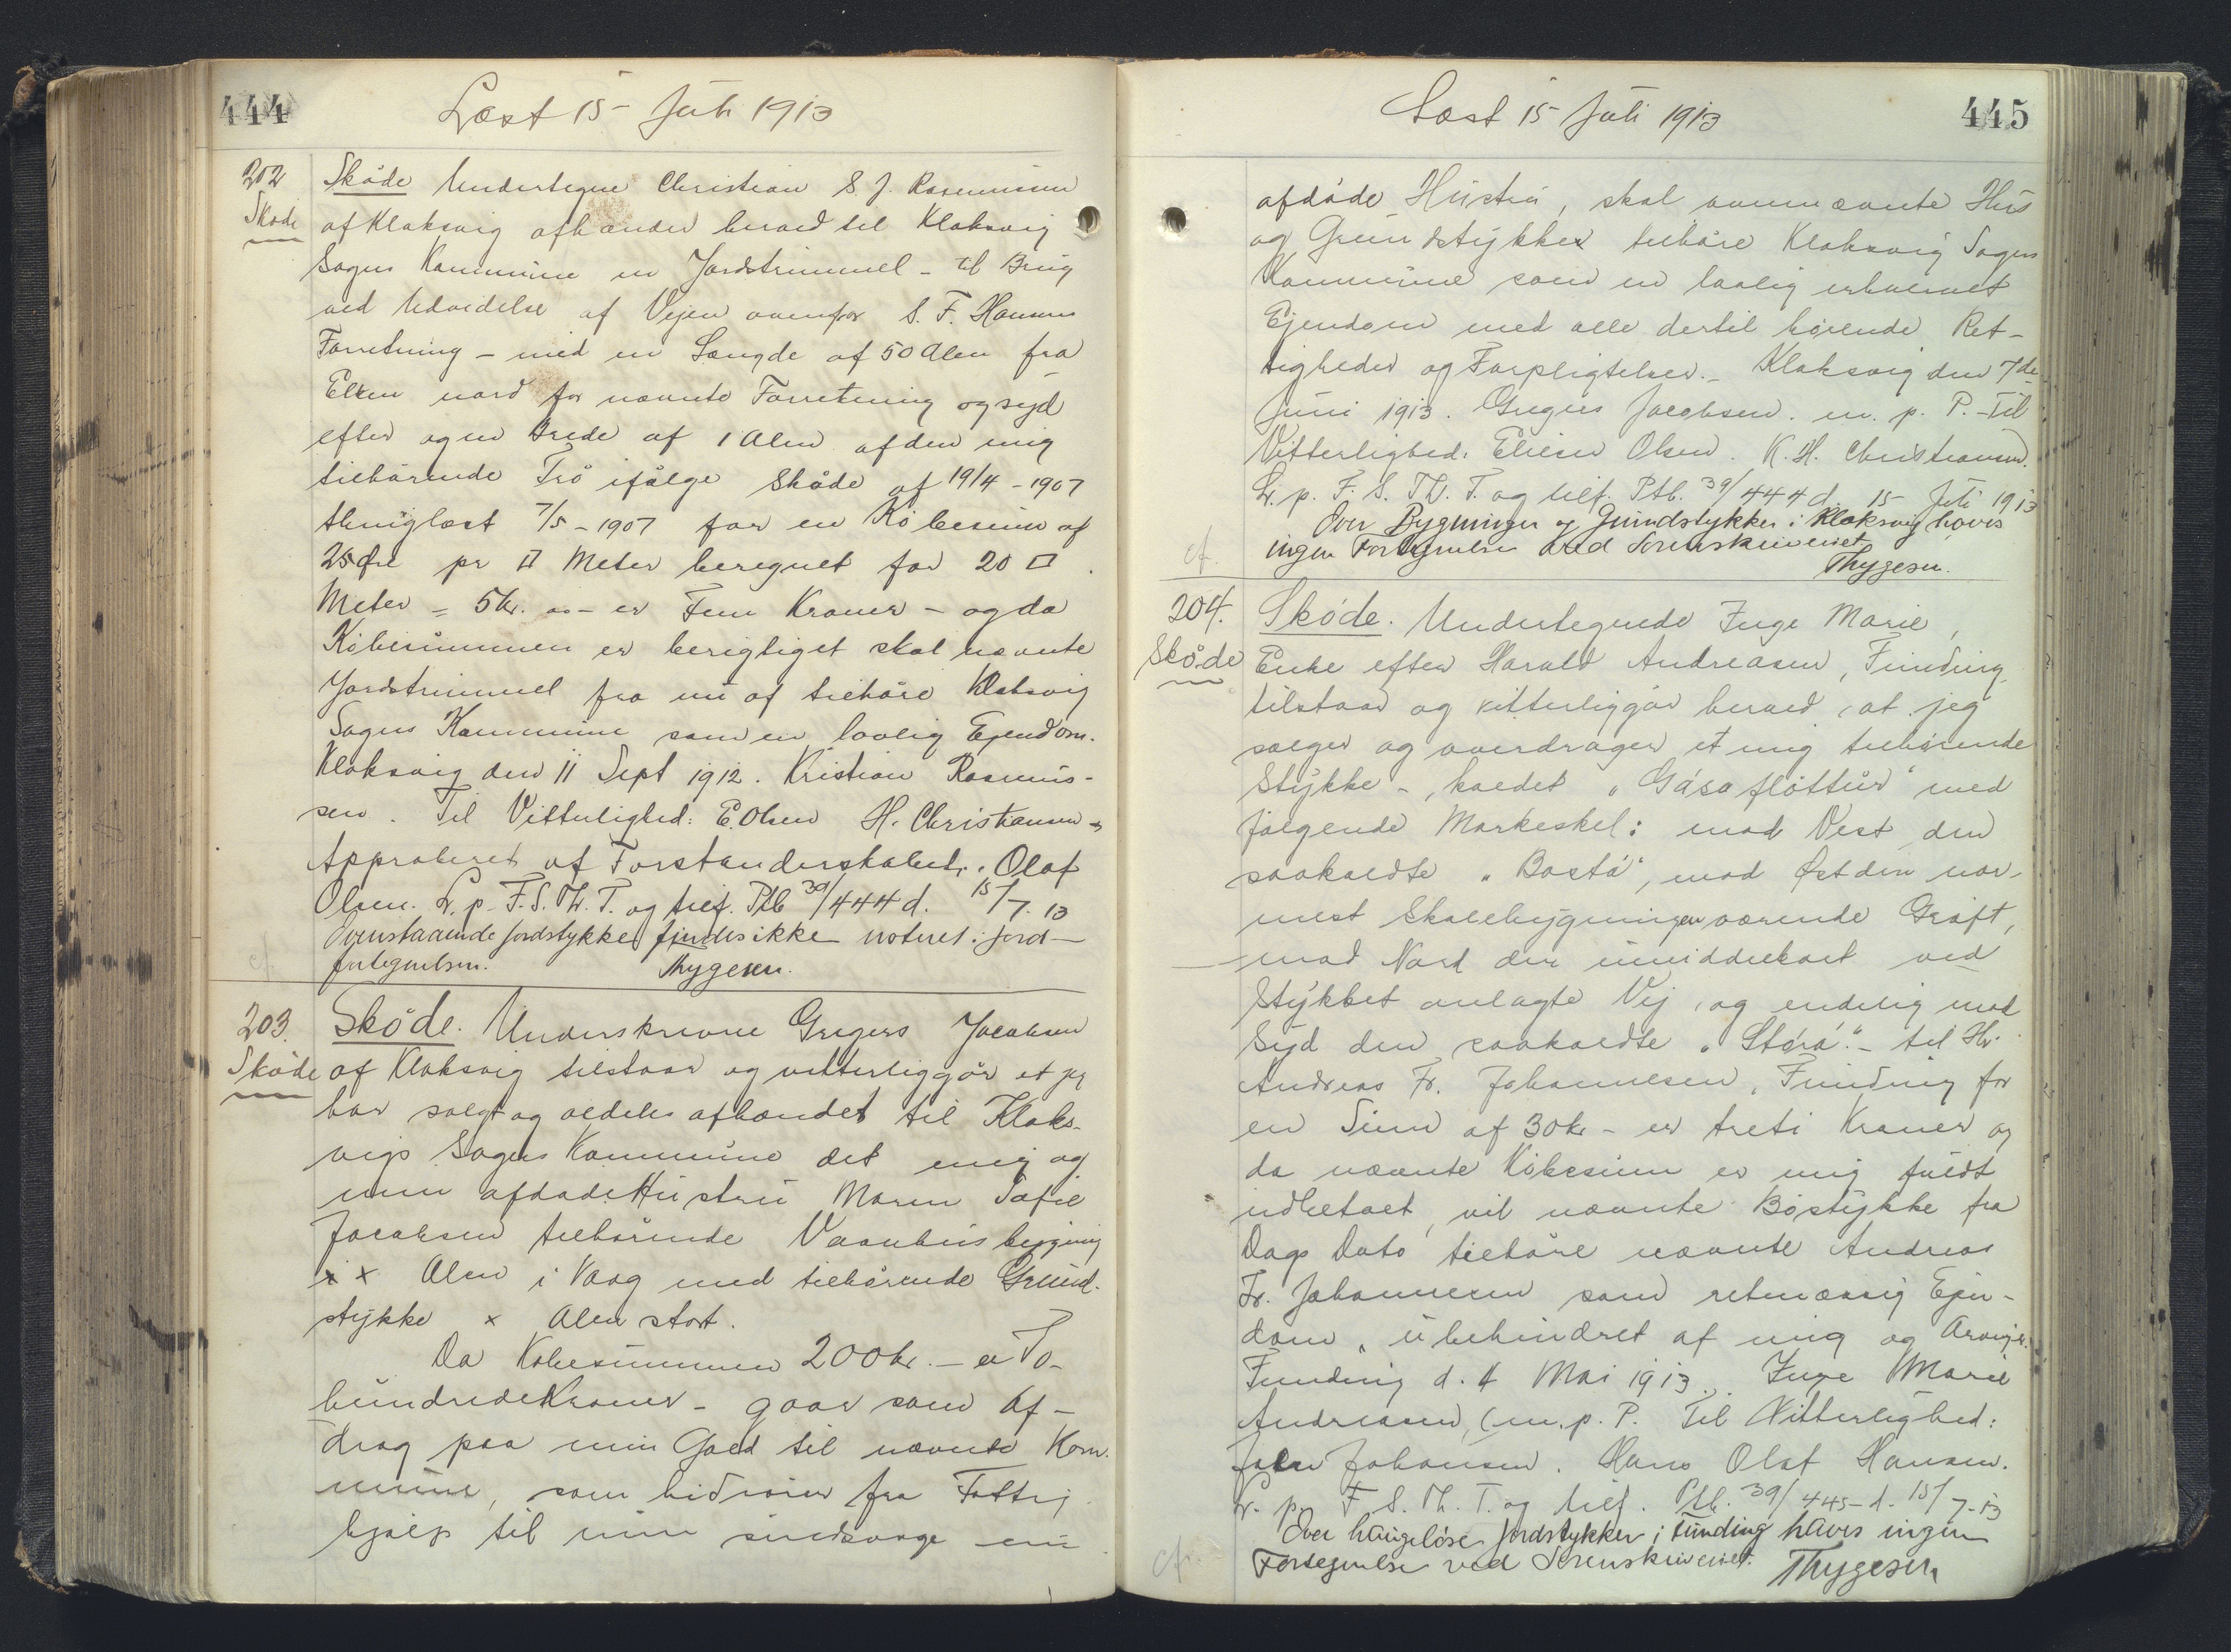 444
Læst 15 Juli 1913
202
Skøde
Skøde Undertegne Christian S. J. Rasmussen
af Klaksvig afhænder herved til Klaksvig
Sogns Kommune en Jordstrimmel - til Brug
ved Udvidelse af Vejen ovenfor S. F. Hansens
Forretning - med en Længde af 50 Alen fra
Elven nord for nævnte Forretning og syd
efter og en Brede af 1 Alen af den mig
tilhørende Trø ifølge Skøde af 19/4 - 1907
thinglæst 7/5 - 1907 for en Købesum af
25 Øre pr □ Meter beregnet for 20 □
Meter = 5 Kr. er Fem Kroner - og da
Købesummen er berigtiget skal nævnte
Jordstrimmel fra nu af tilhøre Klaksvig
Sogns Kommune som en lovlig Ejendom.
Klaksvig den 11 Sept 1912. Kristian Rasmus-
sen. Til Vitterlighed: E. Olsen H. Christiansen
Approberet af Forstanderskabet. Olaf
Olsen. L. p. F. S. Th. T. og tilf. Ptb 39/444 d. 15/7. 13
Ovenstaaende Jordstykke findes ikke noteret i Jord-
fortegnelsen. Thygesen.
cf.
203.
Skøde
Skøde. Underskrevne Gregers Jacobsen
af Klaksvig tilstaar og vitterliggør at jeg
har solgt og aldeles afhændet til Klaks-
vigs Sogns Kommune det mig og
min afdøde Hustru Maren Sofie
Jacobsen tilhørende Vaanhusbygning
x x Alen i Vaag med tilhørende Grund-
stykke x Alen stort.
Da Købesummen 200 Kr. - er To-
hundrede Kroner - gaar som Af-
drag paa min Gæld til nævnte Kom-
mune, som hidrører fra Fattig-
hjælp til min sindssyge nu
445
Læst 15 Juli 1913
afdøde Hustru, skal ovennævnte Hus
og Grundstykke tilhøre Klaksvig Sogns
Kommune som en lovlig erhvervet
Ejendom med alle dertil hørende Ret-
tigheder og Forpligtelser. - Klaksvig den 7de
Juni 1913. Gregers Jacobsen. m. p. P. - Til
Vitterlighed: Eliesar Olsen. K. H. Christiansen.
L. p. F. S. Th. T. og tilf. Ptb. 39/444 d. 15 Juli 1913
Over Bygninger og Grundstykker i Klaksvig haves
ingen Fortegnelse ved Sorenskriveriet
Thygesen.
cf.
204.
Skøde
Skøde. Undertegnede Inge Marie,
Enke efter Harald Andreasen, Funding,
tilstaar og vitterliggør herved, at jeg
sælger og overdrager et mig tilhørende
Stykke -, kaldet "Gásafløttur" med
følgende Markeskel: mod Vest den
saakaldte "Bastá", mod Øst den nær-
mest Skolebygningen værende Grøft,
mod Nord den umiddelbart ved
Stykket anlagte Vej, og endelig mod
Syd den saakaldte "Stórá" - til Hr.
Andreas Fr. Johannesen, Funding for
en Sum af 30 Kr - er treti Kroner og
da nævnte Købesum er mig fuldt
udbetalt, vil nævnte Bøstykke fra
Dags Dato tilhøre nævnte Andreas
Fr. Johannesen som retmæssig Ejen-
dom, ubehindret af mig og Arvinger.
Funding d. 4 Mai 1913. Inge Marie
Andreasen, (m. p. P. Til Vitterlighed:
Johansen. Hans Olaf Hansen.
L. p. F. S. Th. T. og tilf. Ptb. 39/445 - d. 15/7 - 13
Over haugeløse Jordstykker i Funding haves ingen
Fortegnelse ved Sorenskriveriet. Thygesen
cf.